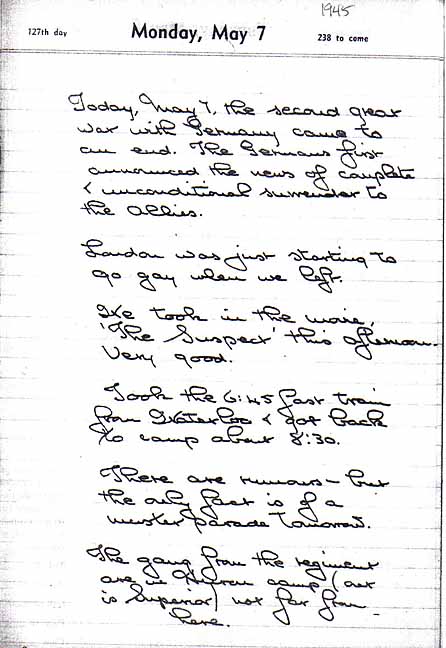 1945
127th day
Monday, May 7
238 to come
Today, May 7, the second great
war with Germany came to
an end. The Germans first
announced the news of complete
& unconditional surrender to
the Allies.
London was just starting to
go gay when we left.
We took in the movie,
'The Suspect' this afternoon.
Very good.
Took the 6:45 fast train
from Waterloo & got back
to camp about 8:30.
There are rumours – but
the only fact is of a
muster parade tomorrow.
The gang from the regiment
are in Huron camp (our
is Superior) not far from
here.